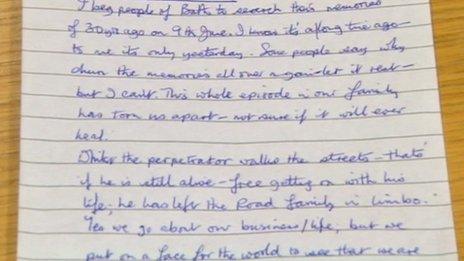 I beg people of Bath to search their memories
of 30 yrs ago on 9th June. I know it's a long time ago
to me its only yesterday. Some people say why
churn the memories all over again let it rest -
but I can't. This whole episode in our family
has torn us apart - not sure if it will ever
heal.
the perpetrator walks the streets - thats
if he is still alive - free getting on with his
life, he has left the Road family in limbo.
Yes we go about our business/life, but we
put on a face for the world to see that we are